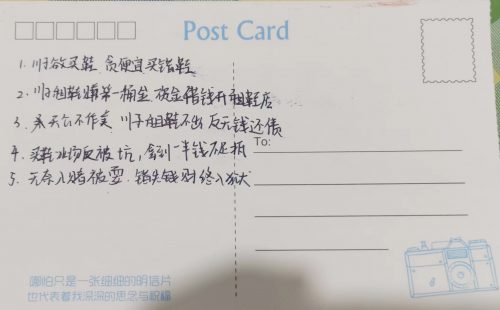 Post Card
1. 川子欲买鞋 贪便宜买错鞋
2. 川子租鞋赚第一桶金 资金借钱开租鞋店
3. 天公不作美 川子租鞋不出 反无钱还债
4. 买鞋 反被坑, 拿到一半钱不足抵
5. 无奈入赌被耍. 错失钱财终入狱
To:
哪怕只是一张细细的明信片
也代表着我深深的思念与祝福